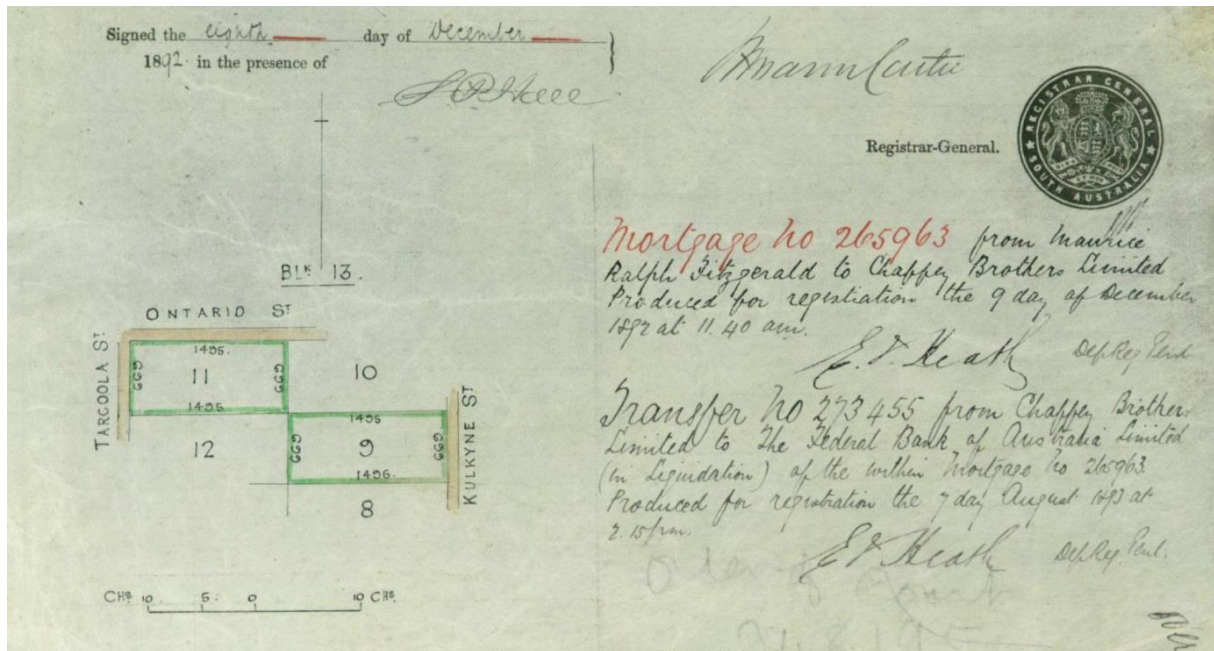 Signed the eighth day of December
1892 in the presence of
Registrar-General.
REGISTRAR GENERAL
SOUTH AUSTRALIA
Mortgage No 265963 from Maurice
Ralph Fitzgerald to Chaffey Brothers Limited
Produced for registration the 9 day of December
1892 at 11.40 am.
E T Heath Dep Reg Genl.
Transfer No 273455 from Chaffey Brothers
Limited to The Federal Bank of Australia Limited
(in Liquidation) of the within Mortgage No 265963.
Produced for registration the 7 day August 1893 at
2.15 p.m.
Dep Reg Genl.
Order of Court
BLK 13.
ONTARIO ST
TARCOOLA ST
1495.
669
11
669
1495
10
12
1495
669
9
669
1495.
KULKYNE ST
8
CHS 10 5 0 10 CHS.